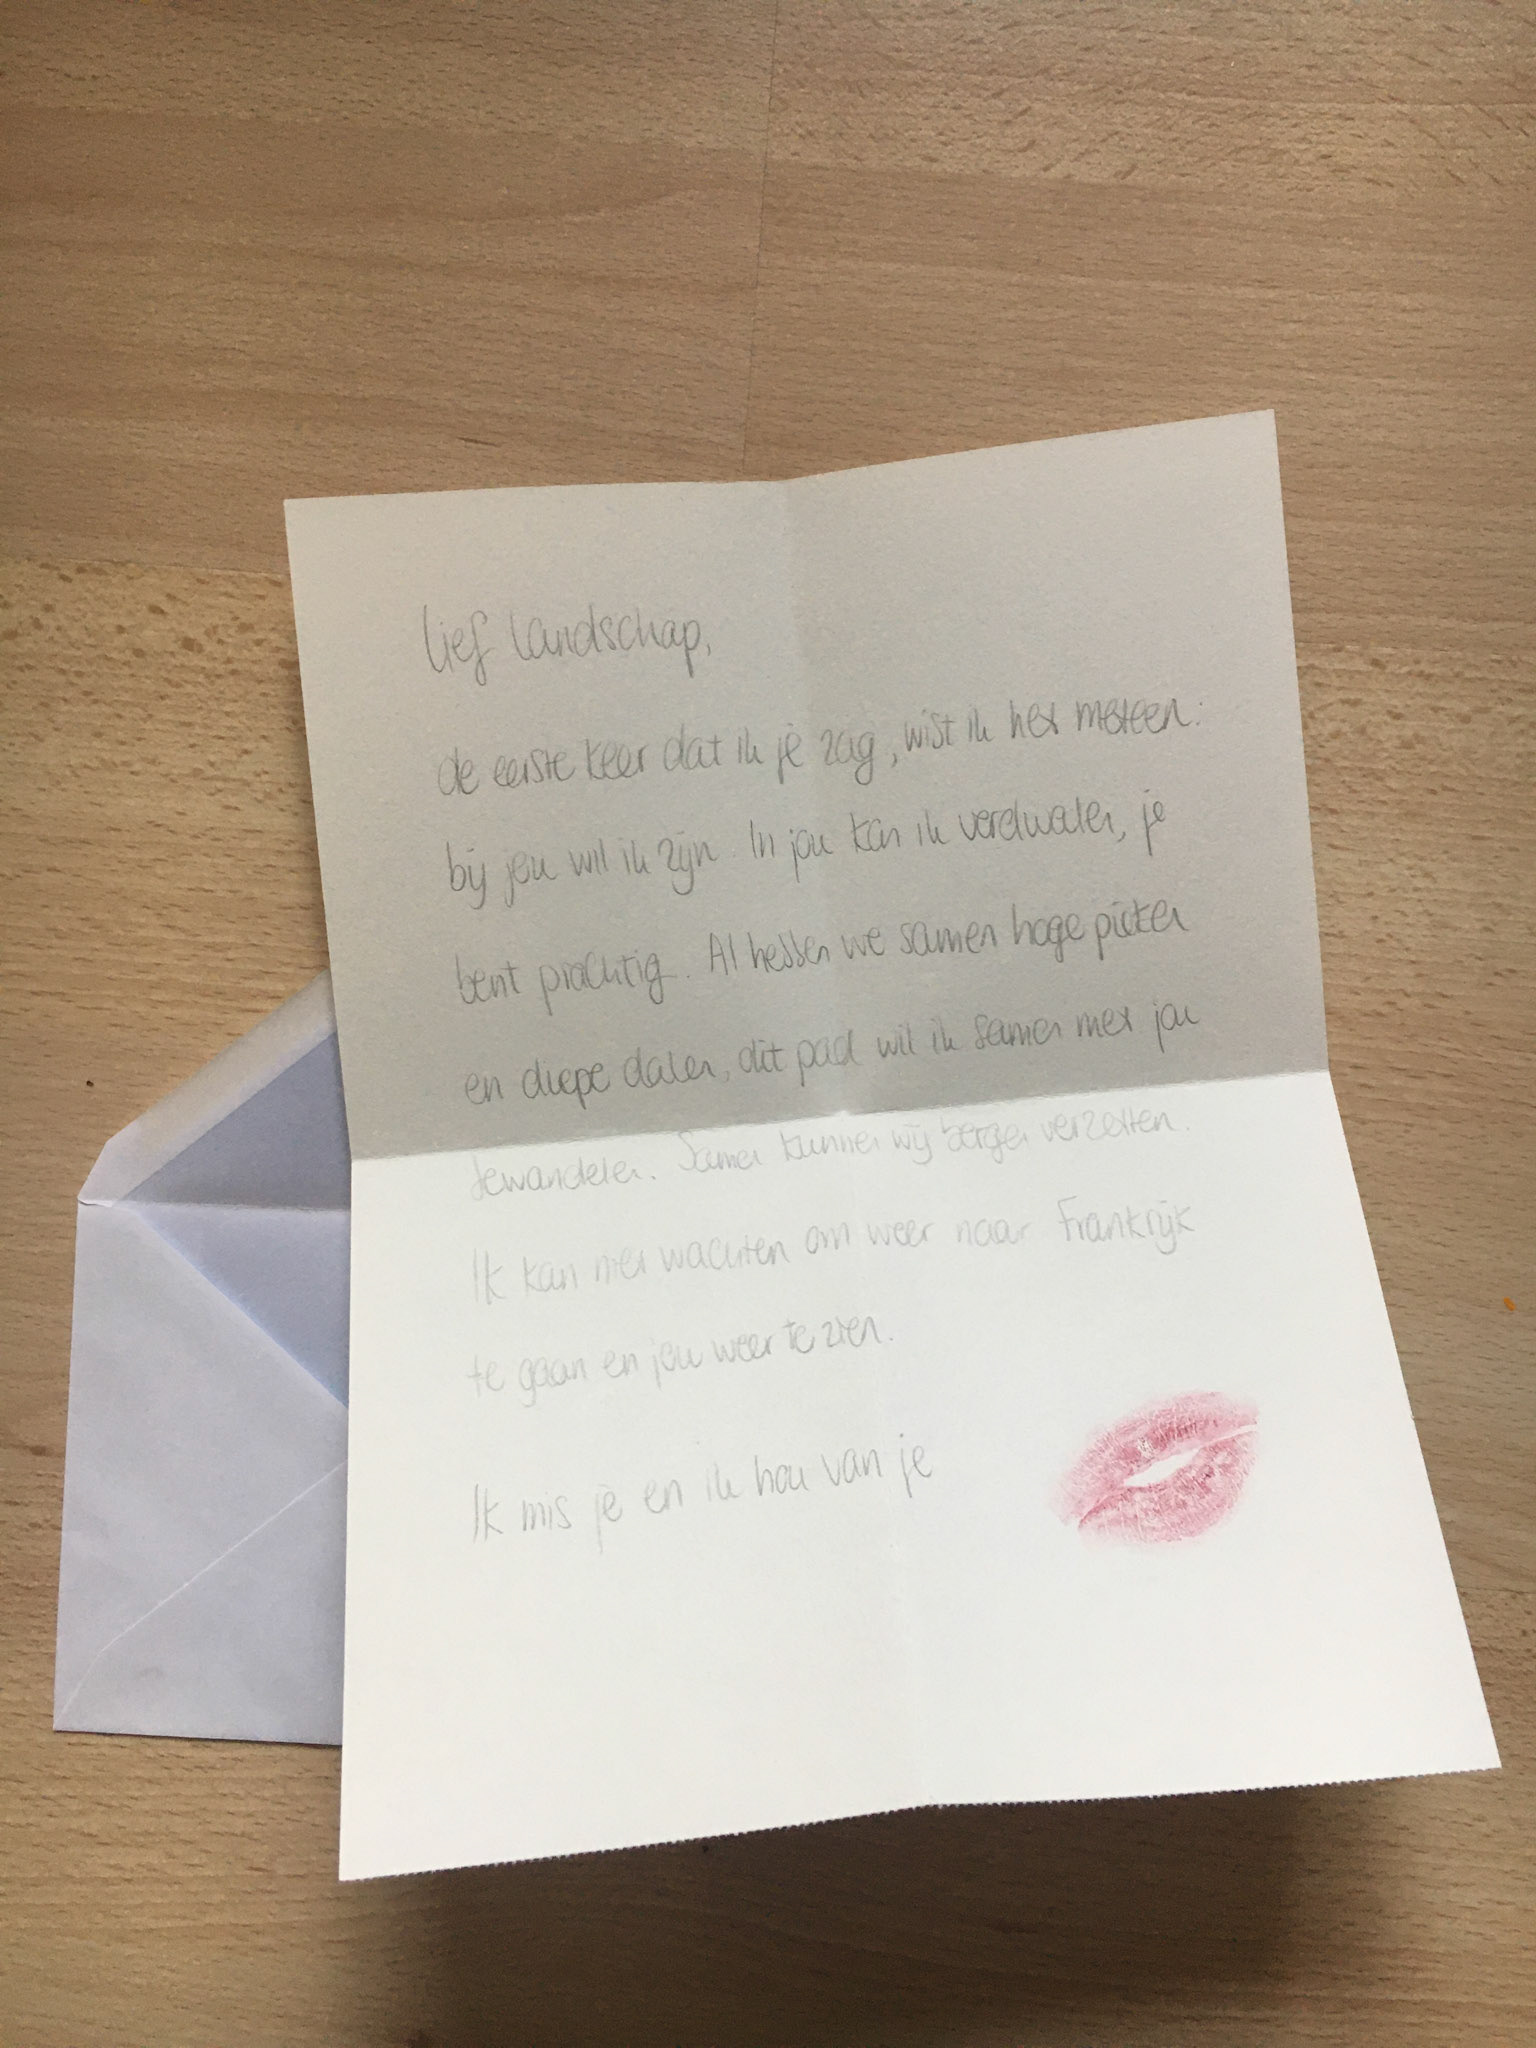 lief landschap,
de eerste keer dat ik je zag, wist ik het meteen:
bij jou wil ik zijn. In jou kan ik verdwalen, je
bent prachtig. Al hebben we samen hoge pieken
en diepe dalen, dit pad wil ik samen met jou
bewandelen. Samen kunnen wij bergen verzetten.
Ik kan niet wachten om weer naar Frankrijk
te gaan en jou weer te zien.
Ik mis je en ik hou van je